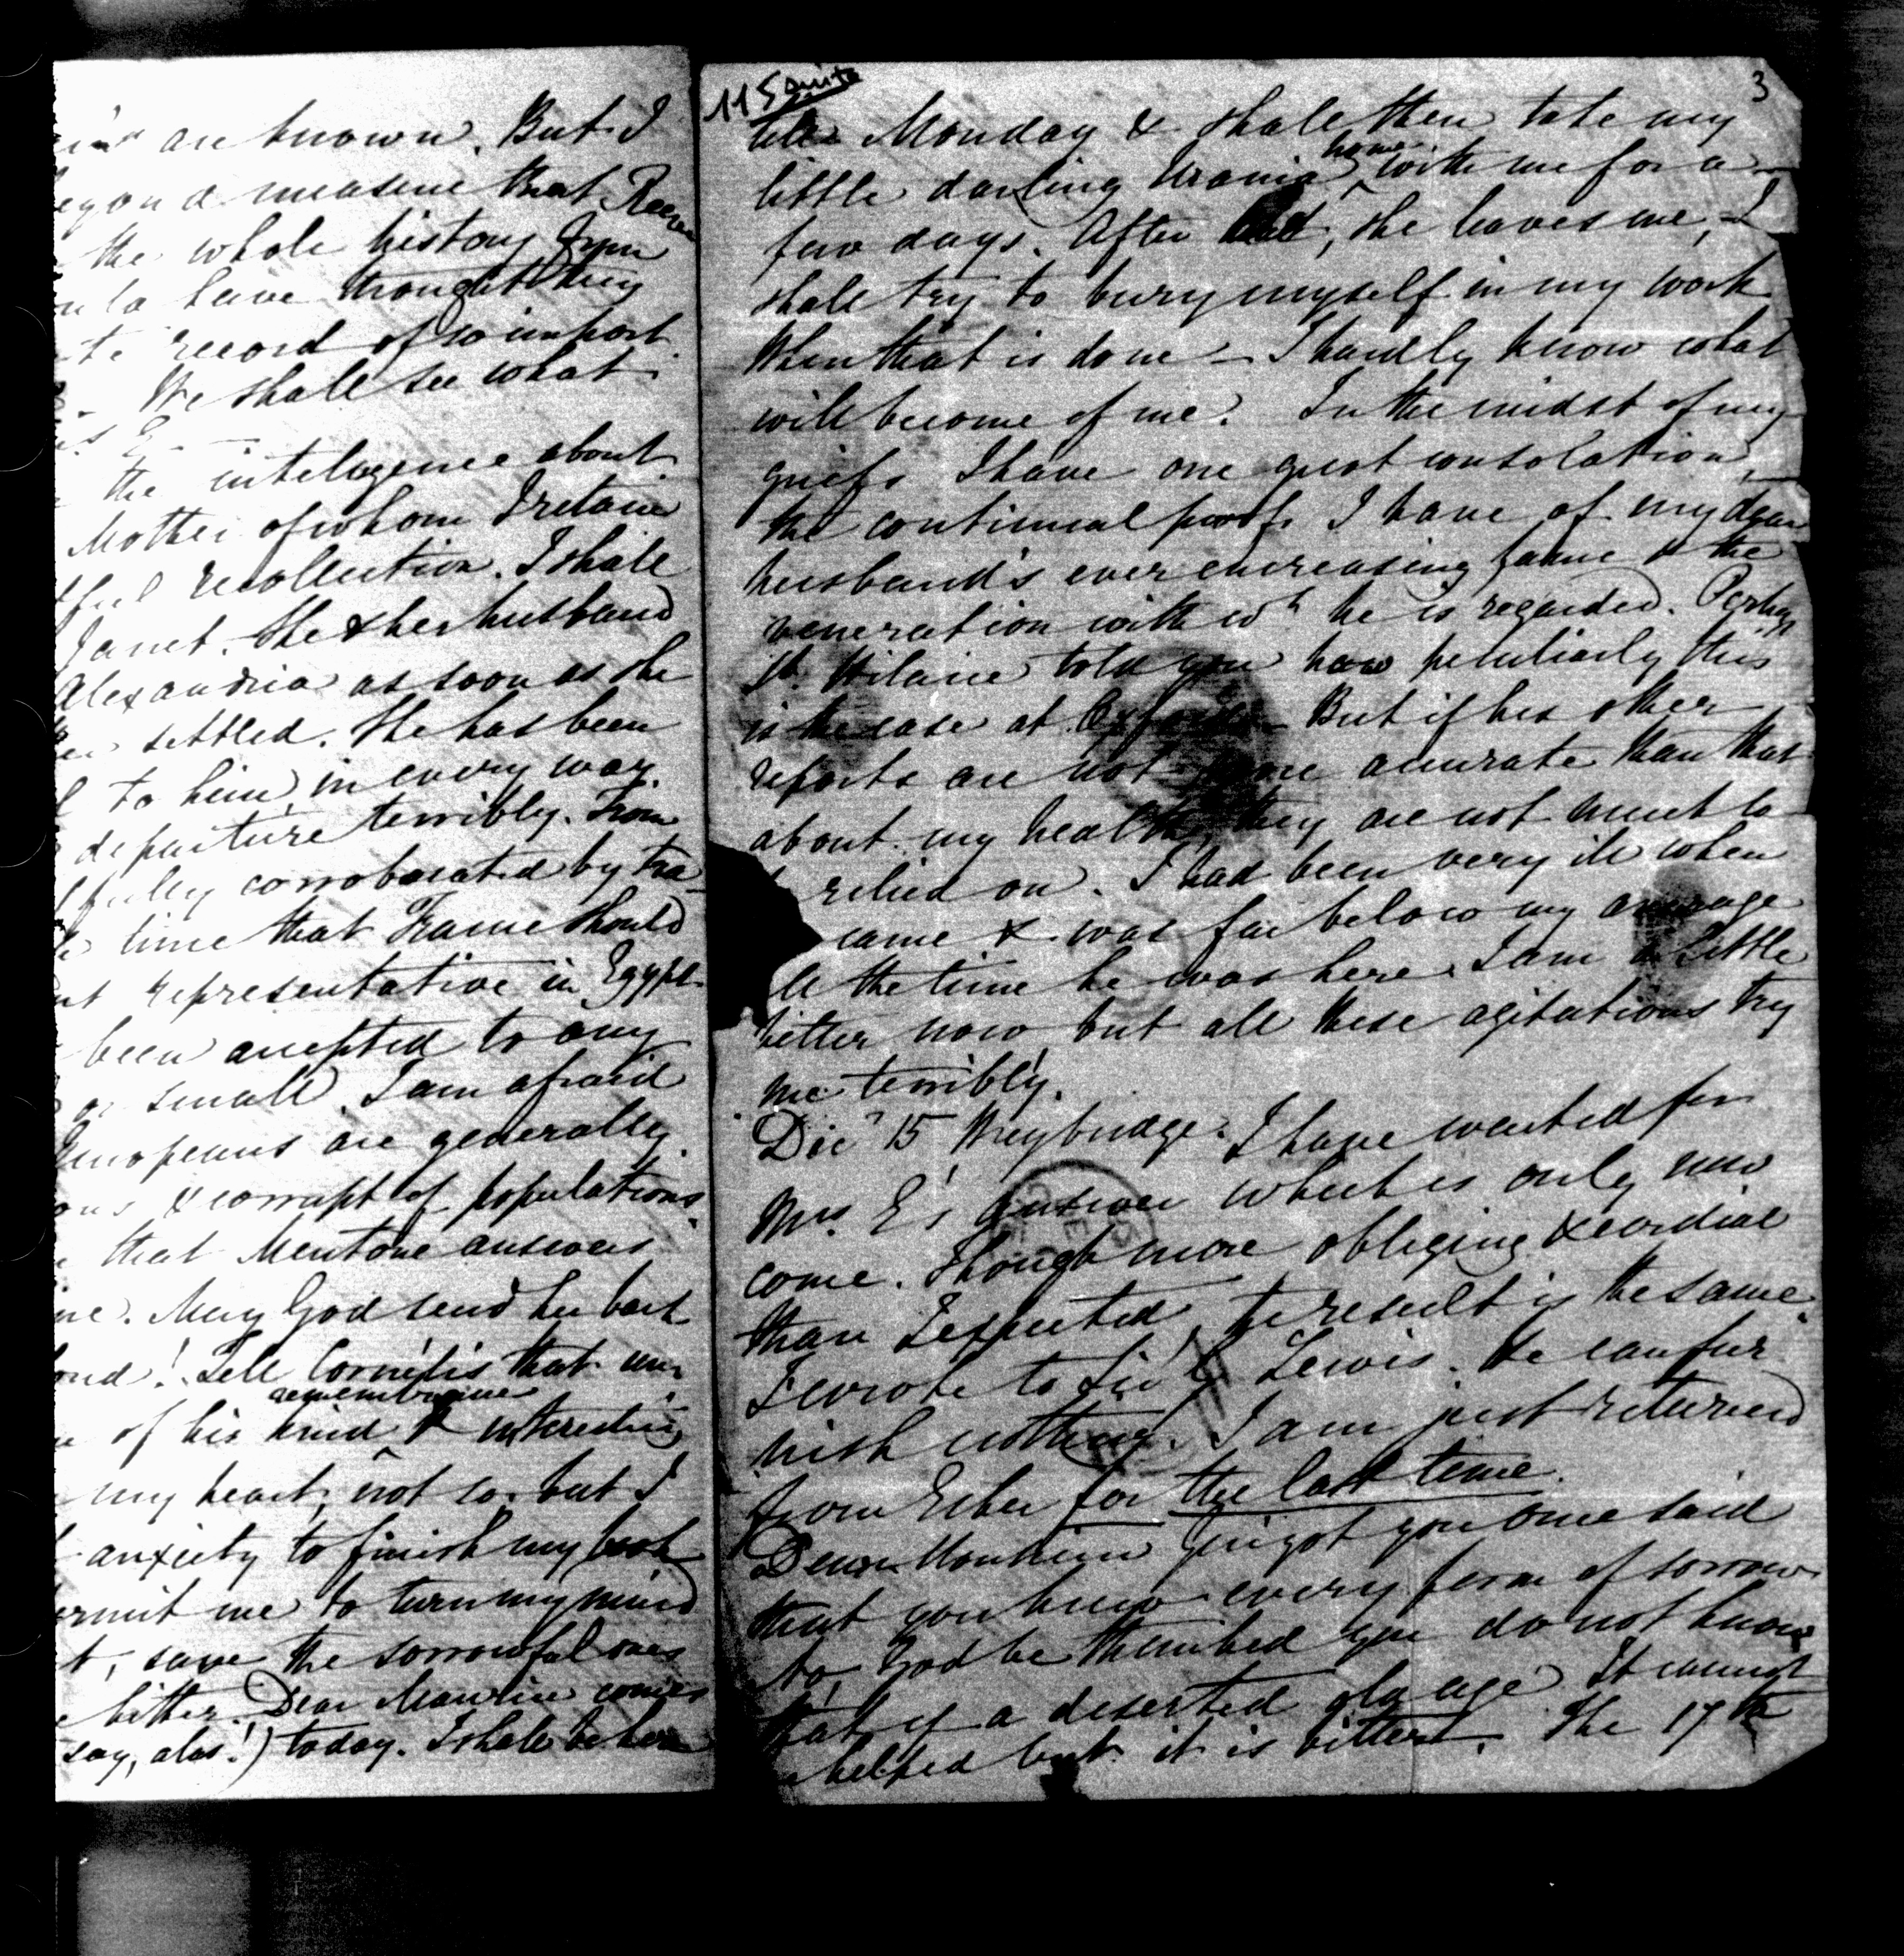 are known. But I
measure that
the whole history from
have thought
record of so import
We shall see what
the intelugence about
Mother of whom I retain
recollection. I shall
Janet. She & her husband
Alexandria as soon as she
settled. She has been
to him, in every way.
departure terribly. From
corroborated by tra-
time that France should
representative in Egypt
been accepted to any
or small. I am afraid
are generally
& corrupt of populations.
that Mentone answers
May God send her back
Tell Cornélis that
remembrance
of his kind & interesting
my heart, not so. but I
anxiety to finish my book
me to turn my mind
save the sorrowful ones
bitter. Dear Maurice comes
say, alas!) today. I shall be here
115 suite
3
till Monday & shall then take my
home
little darling Urania with me for a
few days. After she leaves me, I
shall try to bury myself in my work
When that is done – I hardly know what
will become of me. In the midst of my
griefs I have one great consolation,
the continual proofs I have of my dear
husband's ever encreasing fame & the
veneration with wh he is regarded. Perhaps
St. Hilaire told you how peculiarly this
is the case at Oxford – But if his other
reports are not more accurate than that
about my health, they are not much to
relied on. I had been very ill when
came & was far below my average
the time he was here. I am a little
better now but all these agitations try
me terribly.
Decr 15 Weybridge. I have waited for
Mrs. E's answer which is only now
come. Though more obliging & cordial
than I expected, the result is the same.
I wrote to Sir G Lewis. He can fur
nish nothing. I am just returned
from Esher for the last time.
Dear Monsieur Guigot you once said
that you knew every form of sorrow
No, God be thanked you do not know
that of a deserted old age It cannot
helped but it is bitter. The 17th